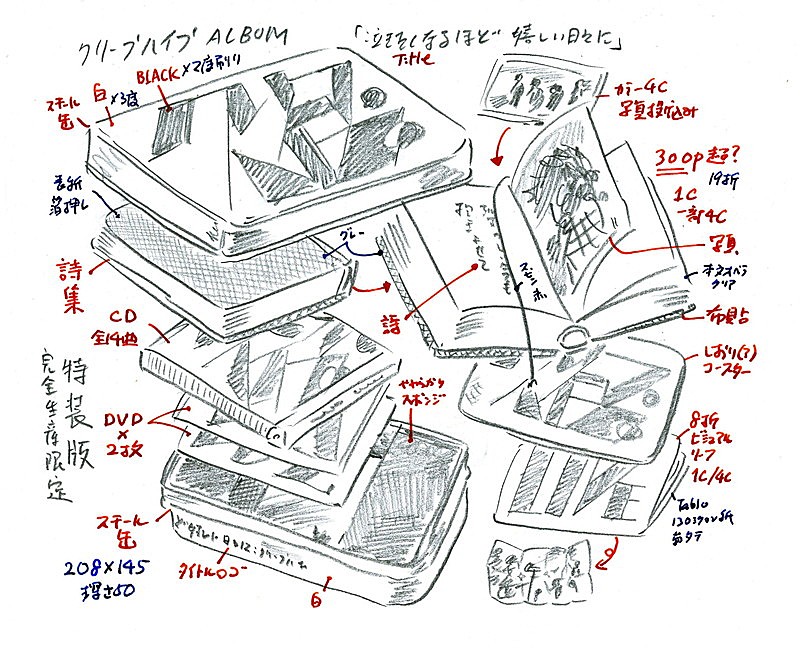 クリープハイプ ALBUM 「泣きたくなるほど嬉しい日々に」
Title
BLACK×2度刷り
白×3度
スチール
缶
カラー4C
写真投げ込み
表紙
箔押し
グレー
300p超?
19折
1C
一部4C
写真
詩集
詩
スピン
布貼
CD
全14曲
しおり(?)
コースター
特装版
完全生産限定
DVD
×
2枚
やわらかい
スポンジ
8折
ビジュアル
リーフ
1C/4C
スチール
缶
208×145
厚さ50
タイトルロゴ
白